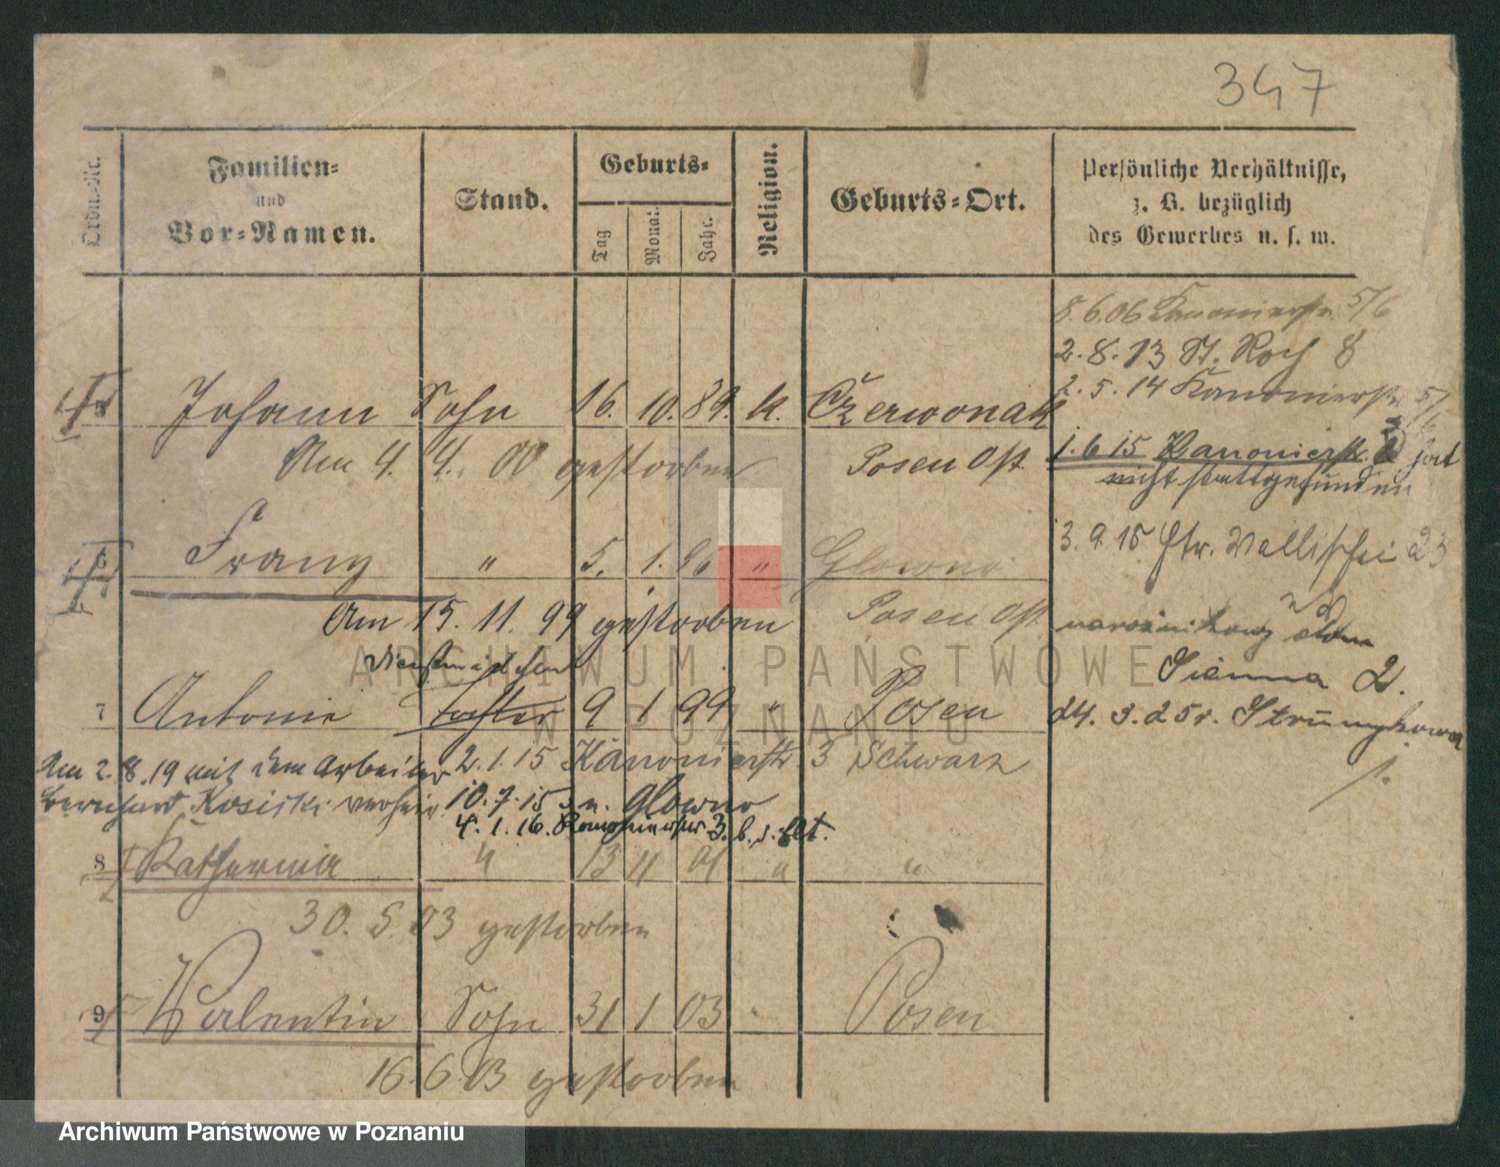 347
Ordn.-Nr.
Familien-
und
Vor-Namen.
Stand.
Geburts-
Tag
Monat.
Jahr.
Religion.
Geburts-Ort.
Persönliche Verhältnisse,
z. B. bezüglich
des Gewerbes u. s. w.
8.6.06 Kanonierstr. 5/6
2.8.13 St. Roch 8
2.5.14 Kanonierstr. 5/6
Johann Sohn 16. 10. 89. k. Czerwonak
Am 4. 4. 00 gestorben Posen Ost
1.6 15 Kanonierstr. hat
nicht stattgefunden
Franz " 5. 1. " Glowno
3. 9. 15 Str. Wallischei 23
Am 15. 11. 99 gestorben Posen Ost
Dienstmädchen
Sienna 2.
7 Antonie Tochter 9 1 99 " Posen
24. 3. 25 r. Strumykowa
Am 2. 8. 19 mit dem Arbeiter 2. 1. 15 Kanonierstr 3 Schwarz
Bernhard Kosicki verheir. 10. 7. 15 n. Glowno
4. 1. 16. Kanonierstr 3. b.
8 Katharina " 13 11 01 " "
30. 5. 03 gestorben
9 Valentin Sohn 31 1 03 " Posen
16. 6. 03 gestorben
ARCHIWUM PAŃSTWOWE
W POZNANIU
Archiwum Państwowe w Poznaniu